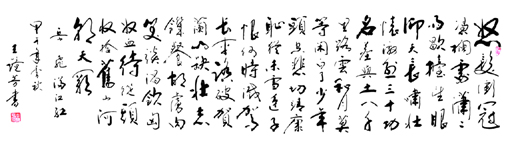 怒髮衝冠
憑欄處蕭蕭
雨歇抬望眼
仰天長嘯壯
懷激烈三十功
名塵與土八千
里路雲和月莫
等閒白了少年
頭空悲切靖康
恥猶未雪臣子
恨何時滅駕
長車踏破賀
蘭山缺壯志
饑餐胡虜肉
笑談渴飲匈
奴血待從頭
收拾舊山河
朝天闕
岳飛滿江紅
甲午年秋
王書